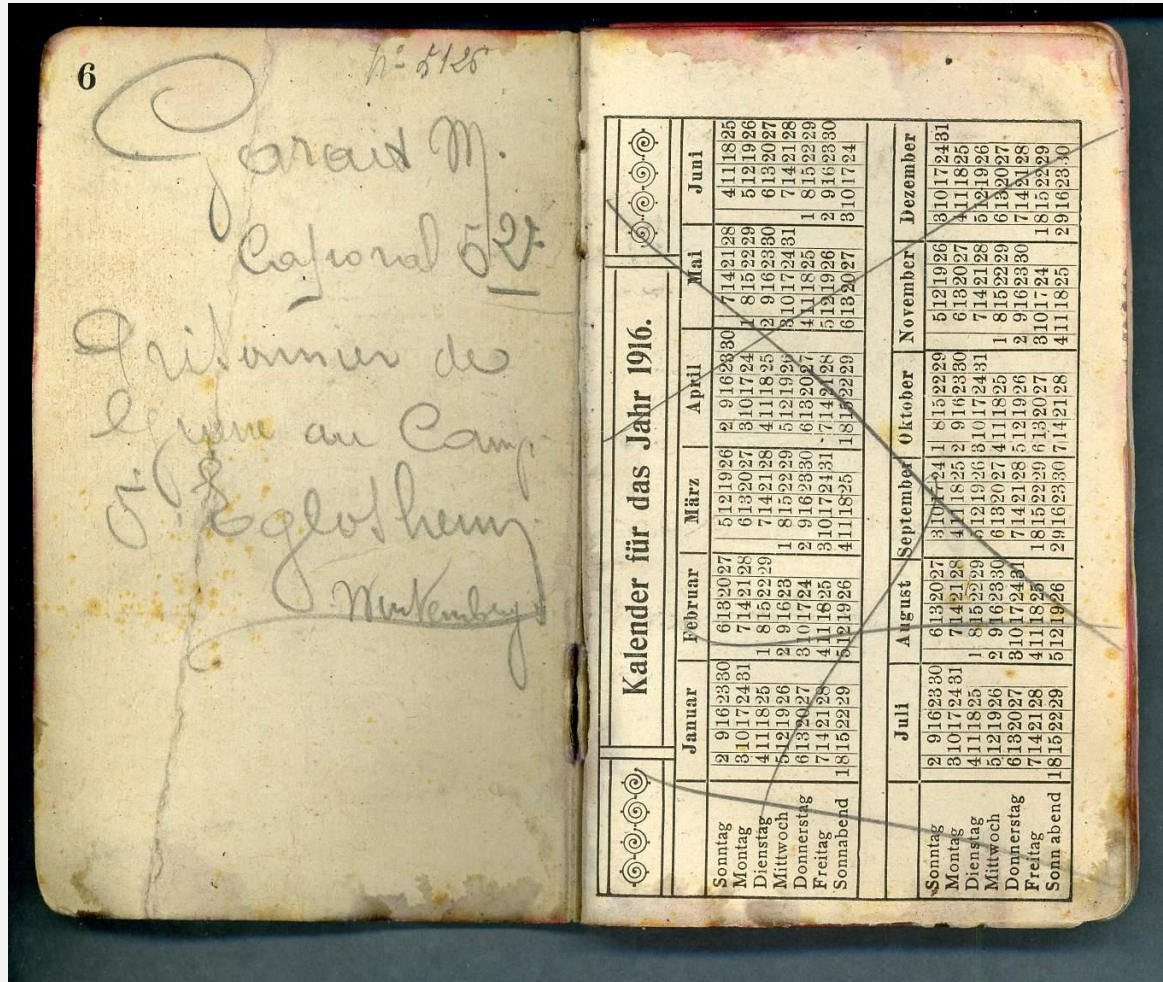 6
No 5125
Garait M.
Caporal 52e
Prisonnier de
guerre au Camp
d'Eglosheim
Wurtemberg
Kalender für das Jahr 1916.
Januar Februar März April Mai Juni
Sonntag 2 9 16 23 30 6 13 20 27 5 12 19 26 2 9 16 23 30 7 14 21 28 4 11 18 25
Montag 3 10 17 24 31 7 14 21 28 6 13 20 27 3 10 17 24 1 8 15 22 29 5 12 19 26
Dienstag 4 11 18 25 1 8 15 22 29 7 14 21 28 4 11 18 25 2 9 16 23 30 6 13 20 27
Mittwoch 5 12 19 26 2 9 16 23 1 8 15 22 29 5 12 19 26 3 10 17 24 31 7 14 21 28
Donnerstag 6 13 20 27 3 10 17 24 2 9 16 23 30 6 13 20 27 4 11 18 25 1 8 15 22 29
Freitag 7 14 21 28 4 11 18 25 3 10 17 24 31 7 14 21 28 5 12 19 26 2 9 16 23 30
Sonnabend 1 8 15 22 29 5 12 19 26 4 11 18 25 1 8 15 22 29 6 13 20 27 3 10 17 24
Juli August September Oktober November Dezember
Sonntag 2 9 16 23 30 6 13 20 27 3 10 17 24 1 8 15 22 29 5 12 19 26 3 10 17 24 31
Montag 3 10 17 24 31 7 14 21 28 4 11 18 25 2 9 16 23 30 6 13 20 27 4 11 18 25
Dienstag 4 11 18 25 1 8 15 22 29 5 12 19 26 3 10 17 24 31 7 14 21 28 5 12 19 26
Mittwoch 5 12 19 26 2 9 16 23 30 6 13 20 27 4 11 18 25 1 8 15 22 29 6 13 20 27
Donnerstag 6 13 20 27 3 10 17 24 31 7 14 21 28 5 12 19 26 2 9 16 23 30 7 14 21 28
Freitag 7 14 21 28 4 11 18 25 1 8 15 22 29 6 13 20 27 3 10 17 24 1 8 15 22 29
Sonnabend 1 8 15 22 29 5 12 19 26 2 9 16 23 30 7 14 21 28 4 11 18 25 2 9 16 23 30